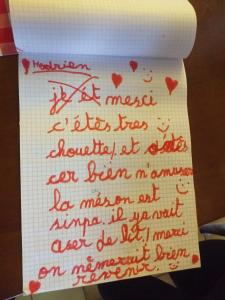 Hadrien
je et merci
c'étés tres
chouette/ et
cer bien n'amuser
la méson est
sinpa. il ya vait
aser de lit/ merci
on n'émerait bien
revenir.